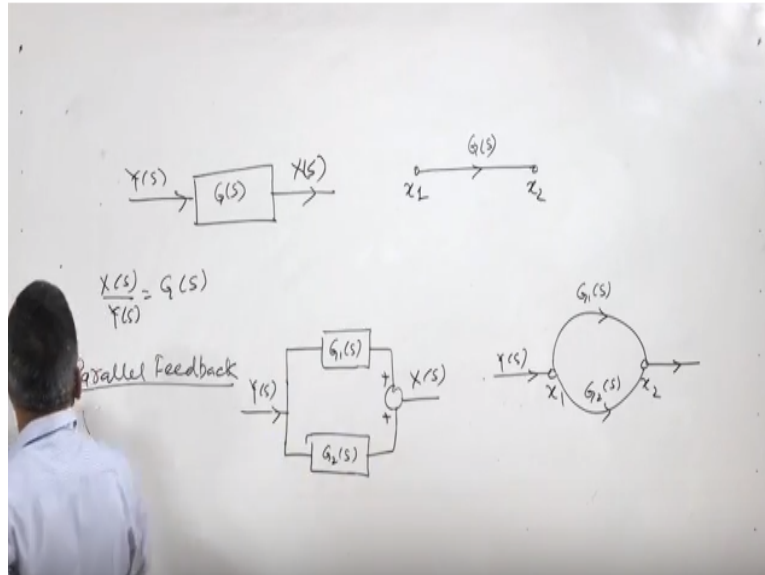 Y(S) G(S) X(S)
G(S)
x1 x2
X(S)/Y(S) = G(S)
Parallel Feedback
Y(S) G1(S) + + X(S)
G2(S)
G1(S)
Y(S) x1 G2(S) x2